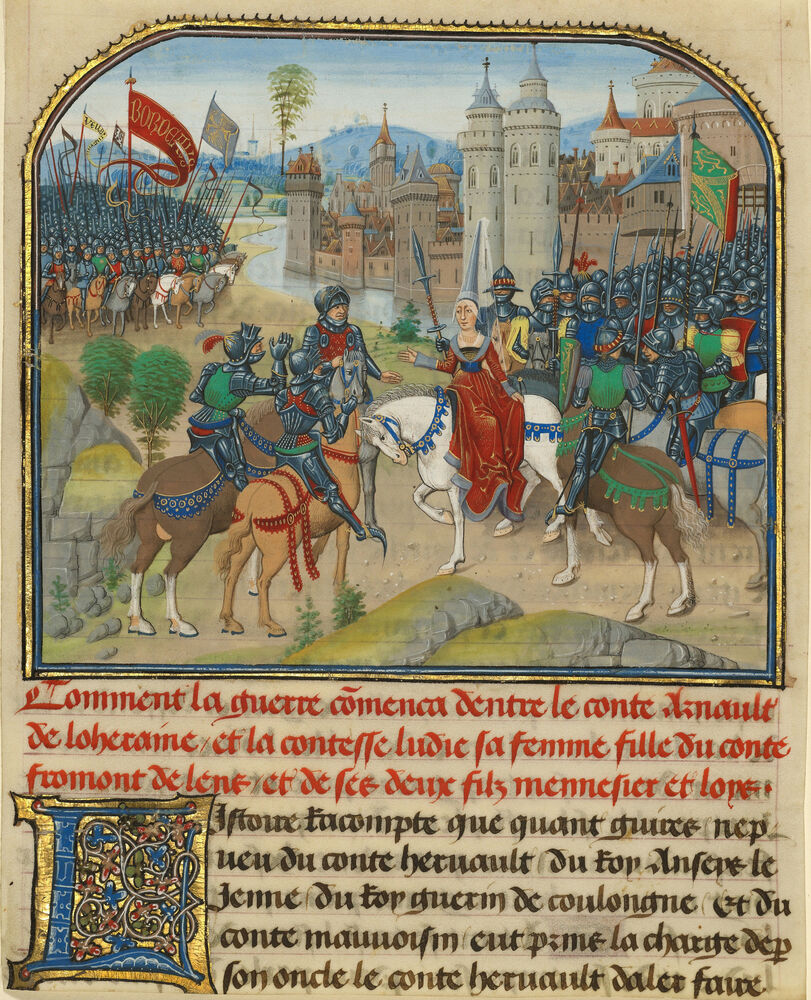 BORDEAUX
Comment la guerre cõmenca dentre le conte Arnault
de loheraine / et la contesse ludie sa femme fille du conte
fromont de lens / et de ses deux filz mennesier et loys.
Listoire racompte que quant guires nep
ueu du conte heruault / du roy Anseys le
Jenne / du roy guerin de coulongne / Et du
conte mauuoisin eut prins la charge de p
son oncle le conte heruault daler faire